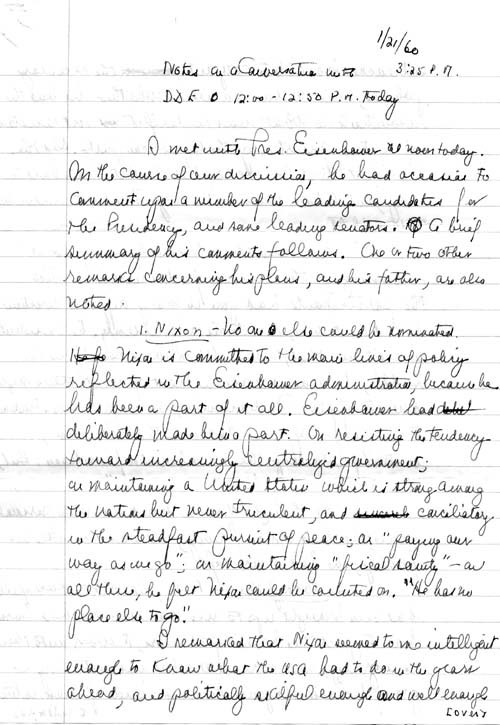 1/21/60
Notes on a Conversation with 3:25 P.M.
DDE 12:00 - 12:50 P.M. Today
I met with Pres. Eisenhower at noon today.
In the course of our discussion, he had occasion to
comment upon a number of the leading candidates for
the Presidency, and some leading senators. A brief
summary of his comments follows. One or two other
remarks concerning his plans, and his father, are also
noted.
1. Nixon - No one else could be nominated.
Nixon is committed to the main lines of policy
reflected in the Eisenhower administration, because he
has been a part of it all. Eisenhower had
deliberately made him a part. On resisting the tendency
toward increasingly centralized government;
on maintaining a United States which is strong among
the nations but never truculent, and conciliatory
in the steadfast pursuit of peace; on "paying our
way as we go"; on maintaining "fiscal sanity" - on
all these, he felt Nixon could be counted on. "He has no
place else to go."
I remarked that Nixon seemed to me intelligent
enough to know what the USA had to do in the years
ahead, and politically skilful enough and well enough
[over]